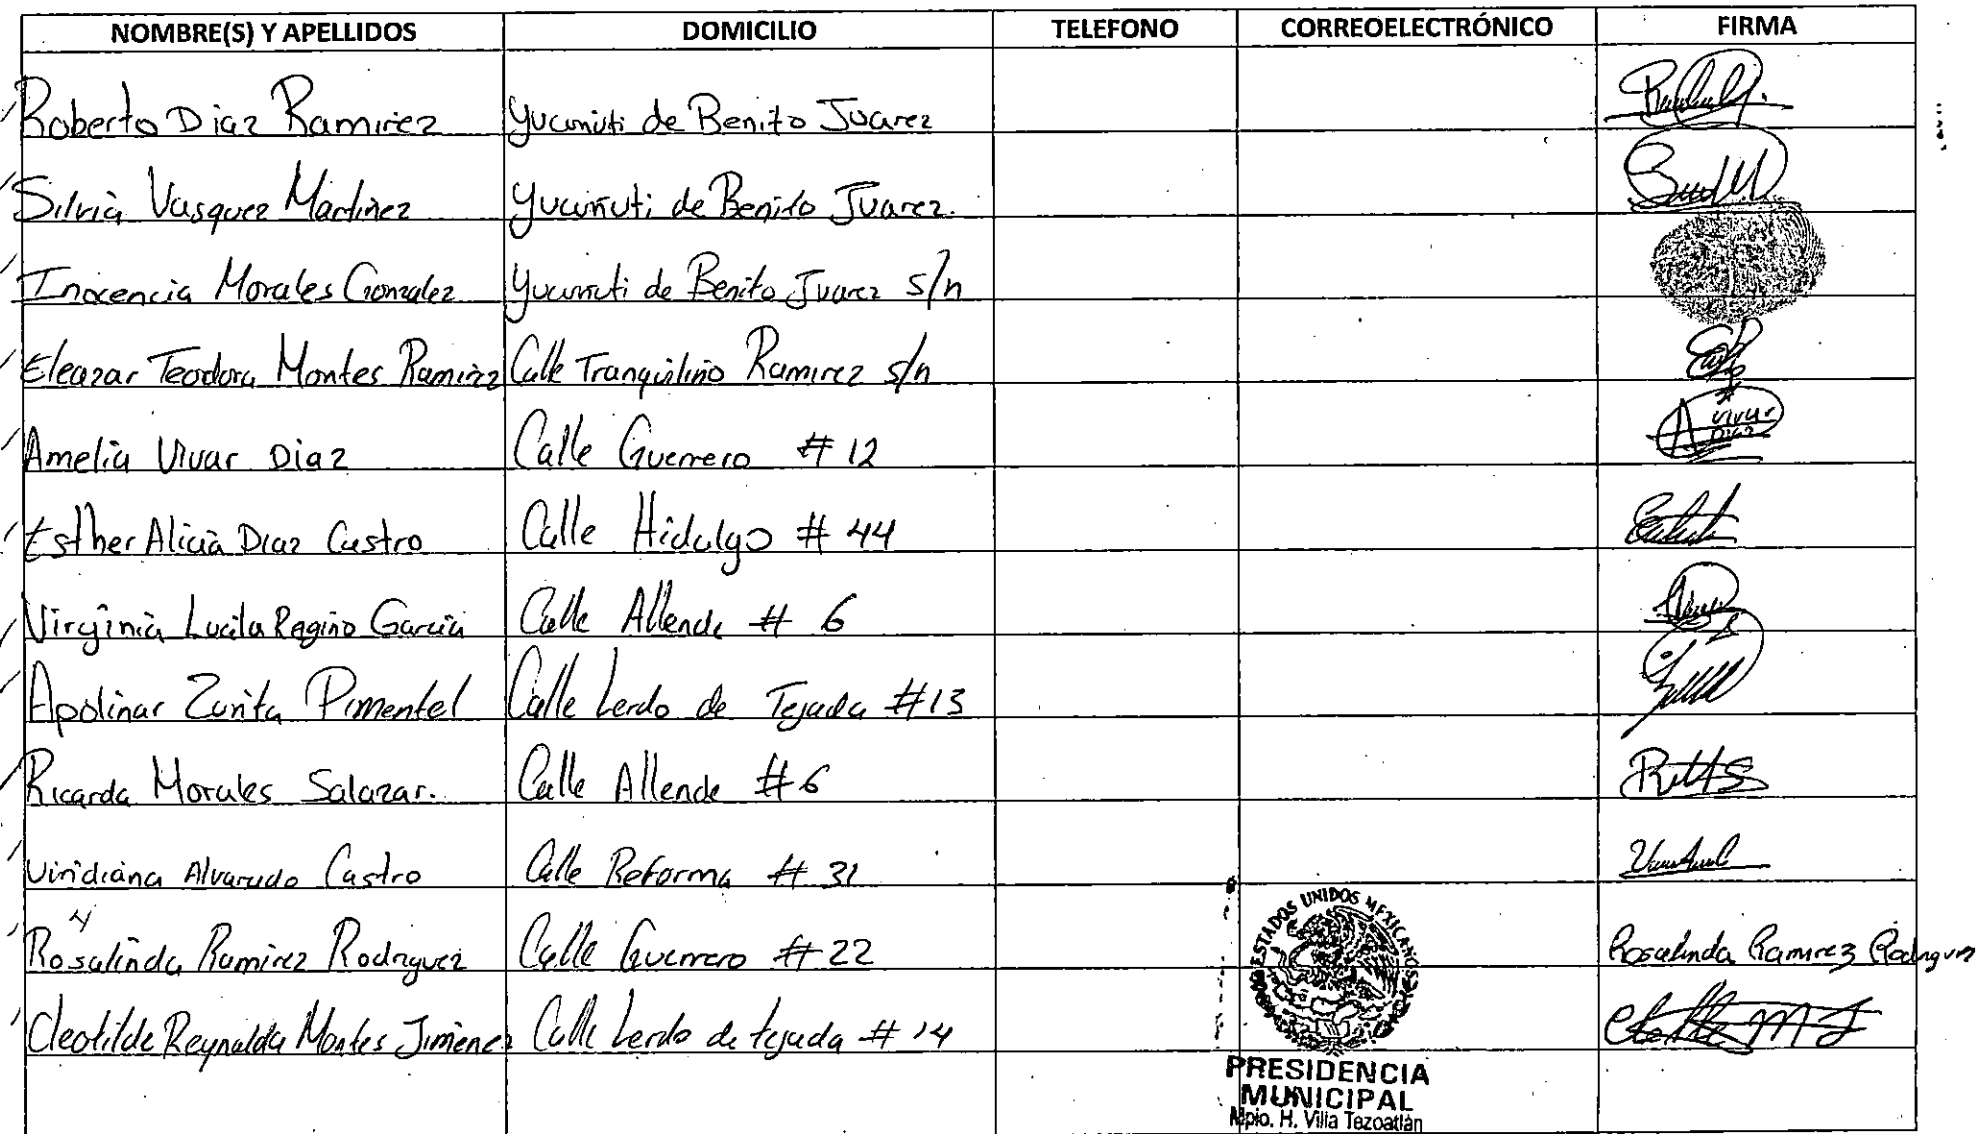 NOMBRE(S) Y APELLIDOS DOMICILIO TELEFONO CORREOELECTRÓNICO FIRMA
Roberto Diaz Ramirez Yucuñuti de Benito Juarez
Silvia Vasquez Martinez Yucuñuti de Benito Juarez.
Inocencia Morales Gonzalez Yucuñuti de Benito Juarez s/n
Eleazar Teodora Montes Ramirez Calle Tranquilino Ramirez s/n
Amelia Vivar Diaz Calle Guerrero # 12 A Vivar Diaz
Esther Alicia Diaz Castro Calle Hidalgo # 44
Virginia Lucila Regino Garcia Calle Allende # 6
Apolinar Zurita Pimentel Calle Lerdo de Tejada #13
Ricarda Morales Salazar. Calle Allende #6
Viridiana Alvarado Castro Calle Reforma # 31
Rosalinda Ramirez Rodriguez Calle Guerrero # 22 Rosalinda Ramirez Rodriguez
Cleotilde Reynalda Montes Jimenez Calle Lerdo de tejada # 14
ESTADOS UNIDOS MEXICANOS
PRESIDENCIA
MUNICIPAL
Mpio. H. Villa Tezoatlán